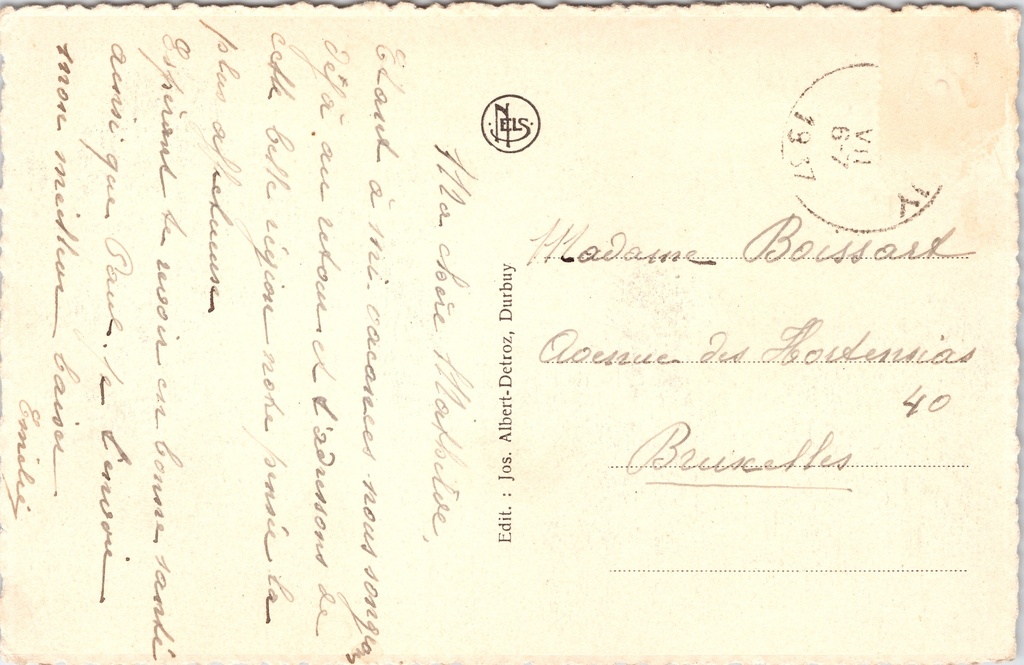 Ma chère
Etant à mi-vacances nous songeons
déjà au retour et t'adressons de
cette belle région notre pensée la
plus affectueuse
Espérant te revoir en bonne santé
ainsi que Paul, je t'envoie
mon meilleur baiser
Emilie
NELS
Edit. : Jos. Albert-Detroz, Durbuy
VII
6-7
1937
Madame Boissart
Avenue des Hortensias
40
Bruxelles